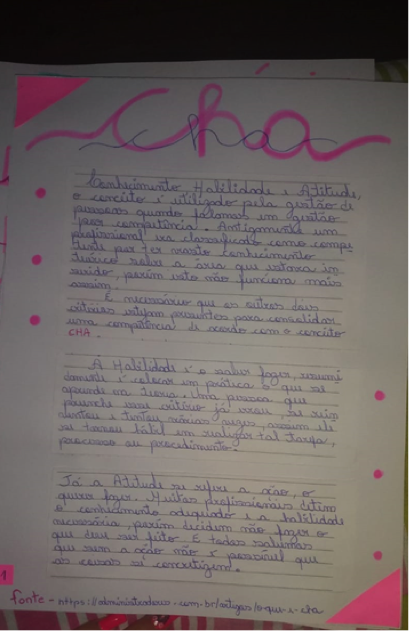 cha
Conhecimento Habilidade e Atitude,
o conceito é utilizado pela gestão de
pessoas quando falamos em gestão
por competência. Antigamente um
profissional era classificado como compe
tente por ter vasto conhecimento
teórico sobre a área que estava in
serido, porém isto não funciona mais
assim.
É necessário que os outros dois
critérios estejam presentes para consolidar
uma competência de acordo com o conceito
CHA.
A Habilidade é o saber fazer, resumi
damente é colocar em prática o que se
aprende na teoria. Uma pessoa que
preenche esse critério já errou, se rein
ventou e tentou várias vezes, assim ele
se tornou hábil em realizar tal tarefa,
processo ou procedimento.
Já a Atitude se refere a ação, o
querer fazer. Muitas profissionais detém
o conhecimento adequado e a habilidade
necessária, porém decidem não fazer o
que deve ser feito. E todas sabemos
que sem a ação não é possível que
as coisas se concretizem.
1
fonte - https://administradores.com.br/artigos/o-que-e-cha